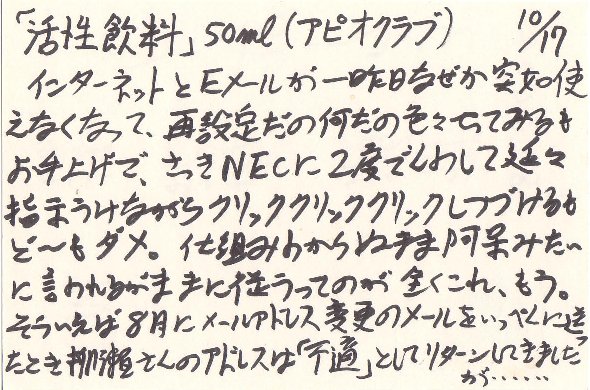 「活性飲料」50ml(アピオクラブ) 10/17
インターネットとEメールが一昨日なぜか突如使
えなくなって、再設定だの何だの色々やってみるも
お手上げで、さっきNECに2度でんわして延々
指示うけながらクリッククリッククリックしつづけるも
ど〜もダメ。仕組みわからぬまま阿呆みたい
に言われるがままに従うってのが全くこれ、もう。
そういえば8月にメールアドレス変更のメールをいっぺんに送っ
たとき柳瀬さんのアドレスは「不適」としてリターンしてきました
が……